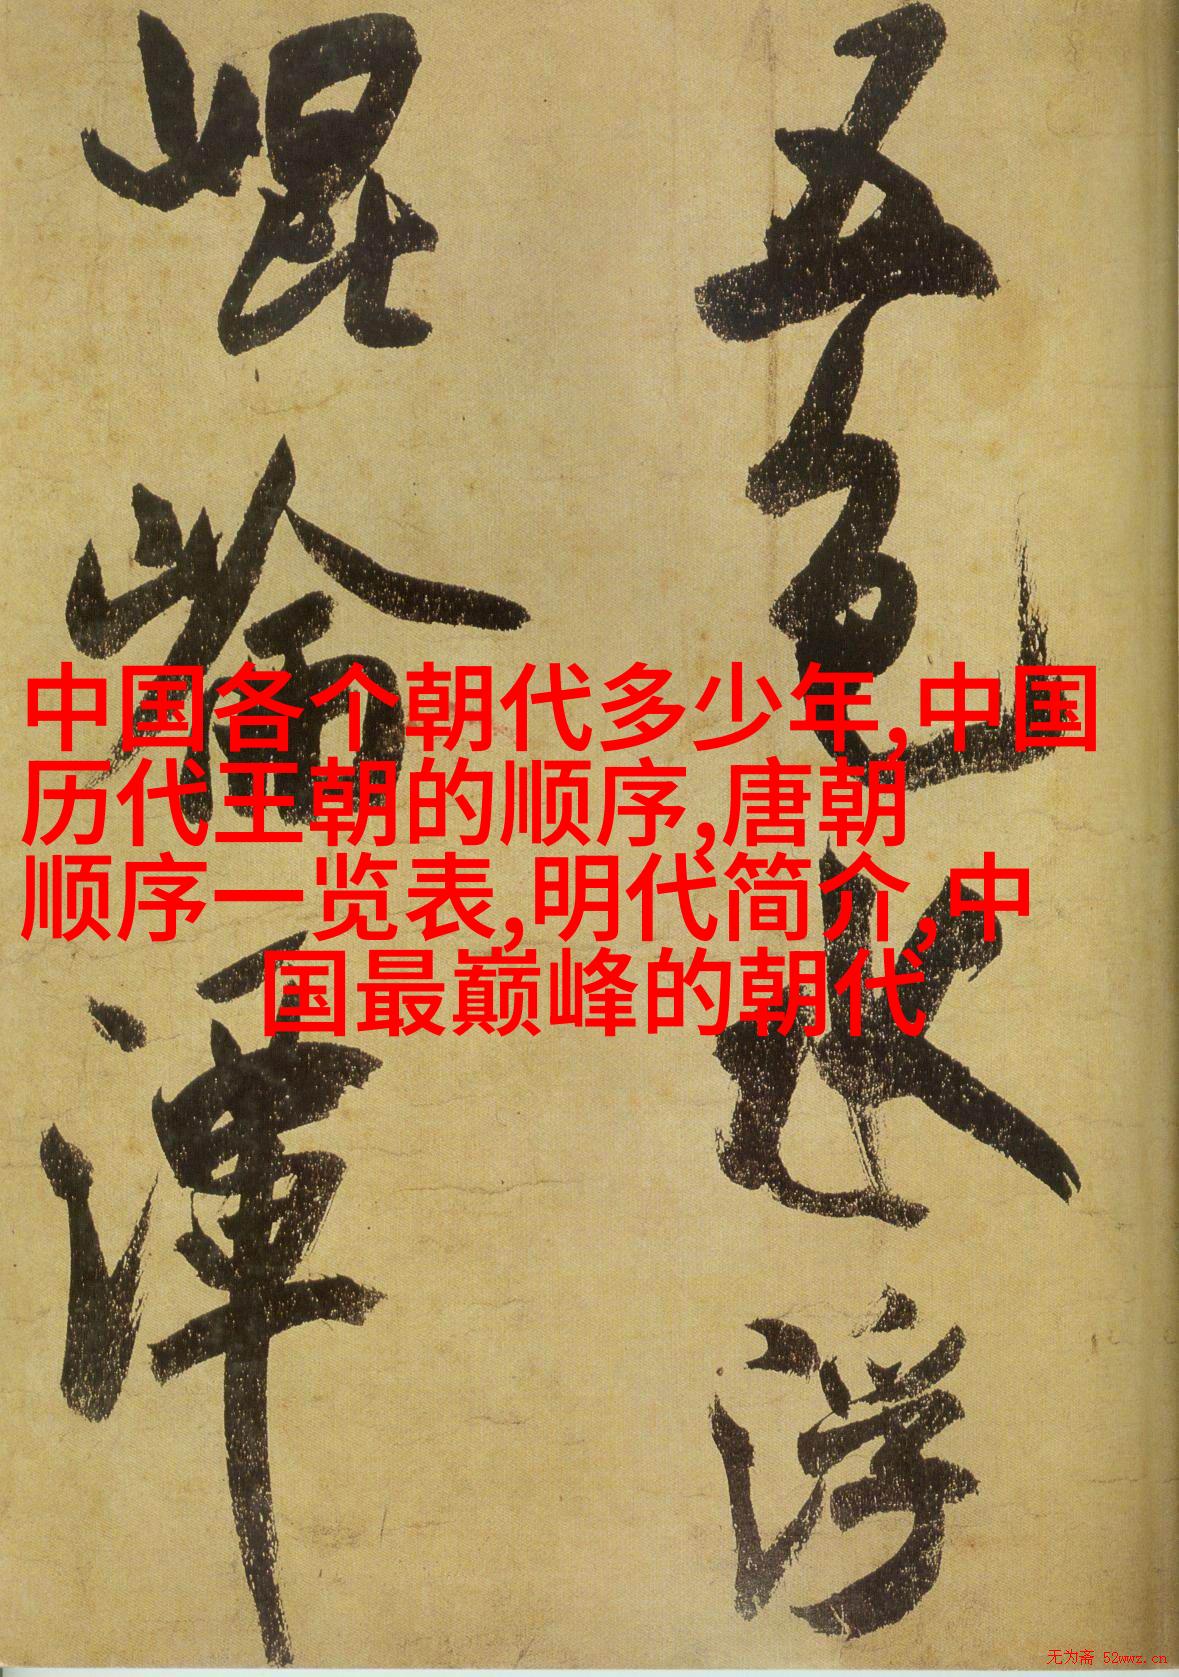 五色水浮
崐崘渾
中国各个朝代多少年,中国
历代王朝的顺序,唐朝
顺序一览表,明代简介,中
国最巅峰的朝代
无为斋 52wwz.cn